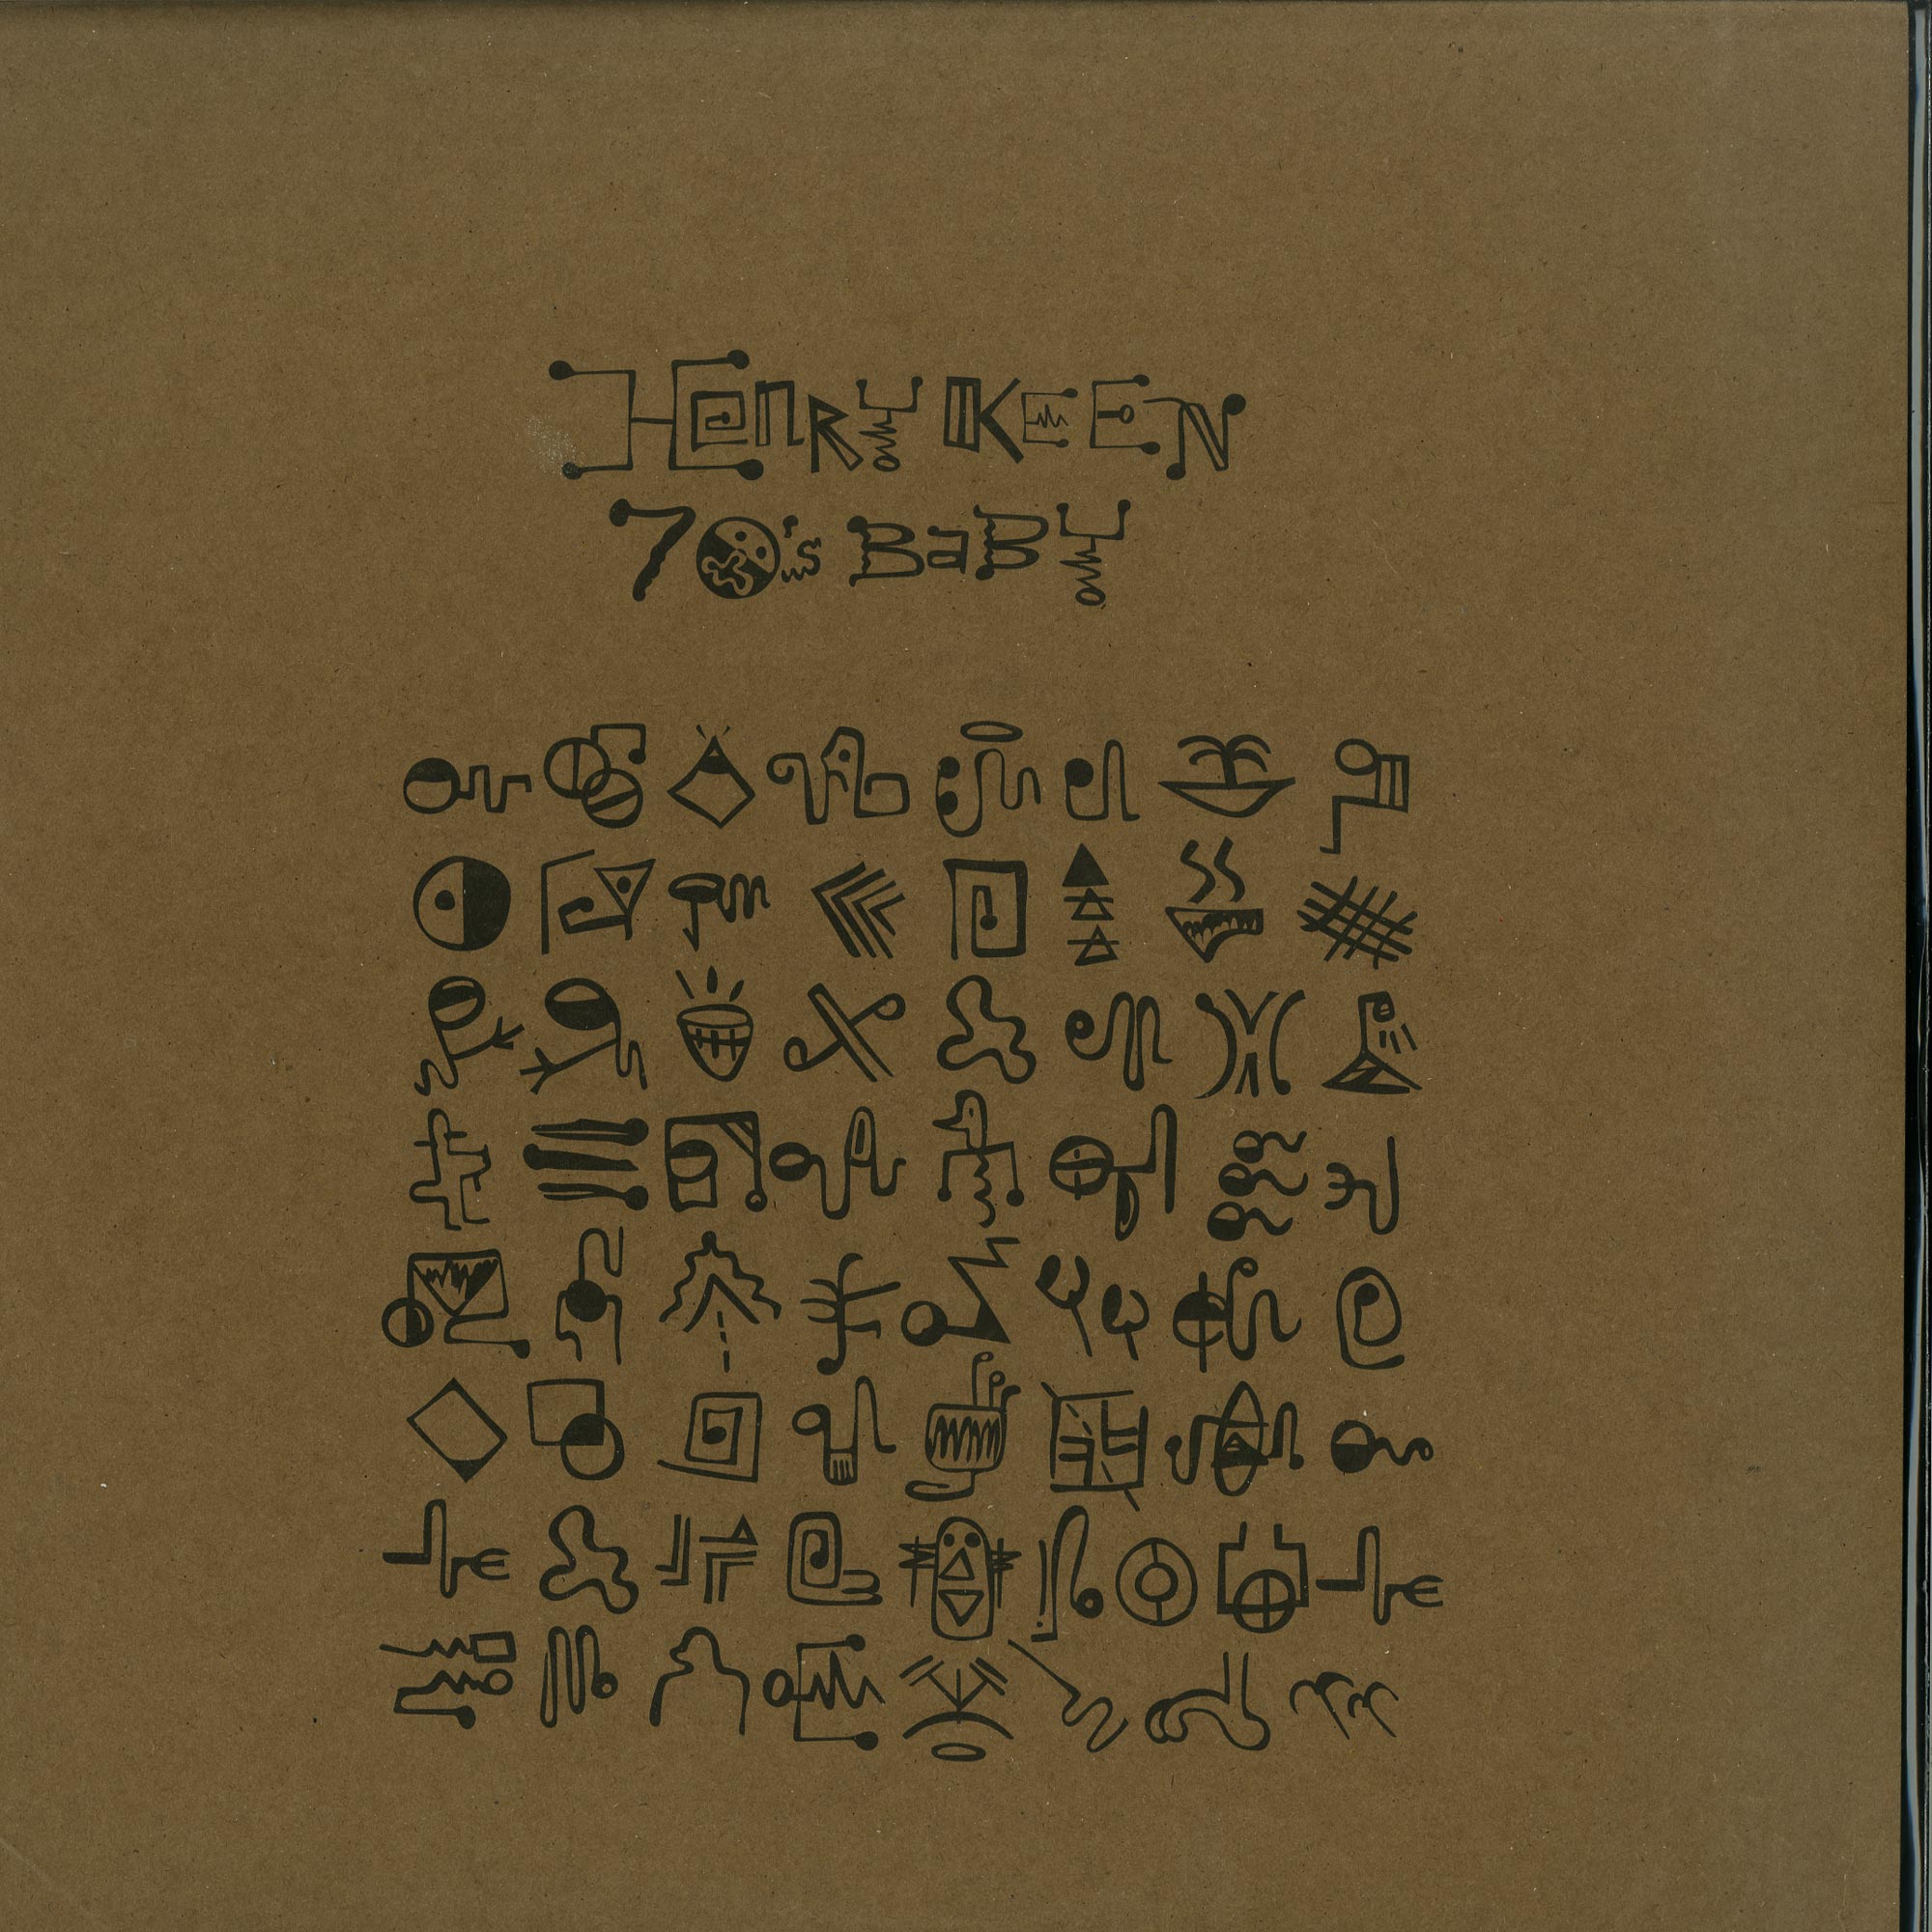 Henry KEEN
70's BaBY